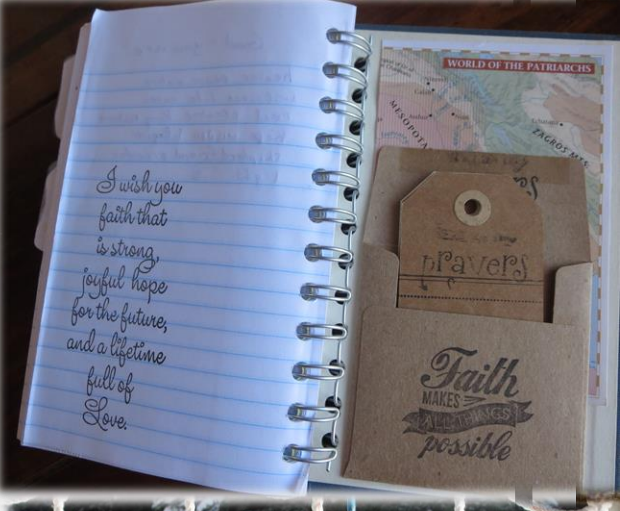 I wish you
faith that
is strong,
joyful hope
for the future,
and a lifetime
full of
Love.
WORLD OF THE PATRIARCHS
MESOPOTA
ZAGROS MTS.
prayers
Faith
MAKES
ALL THINGS
possible